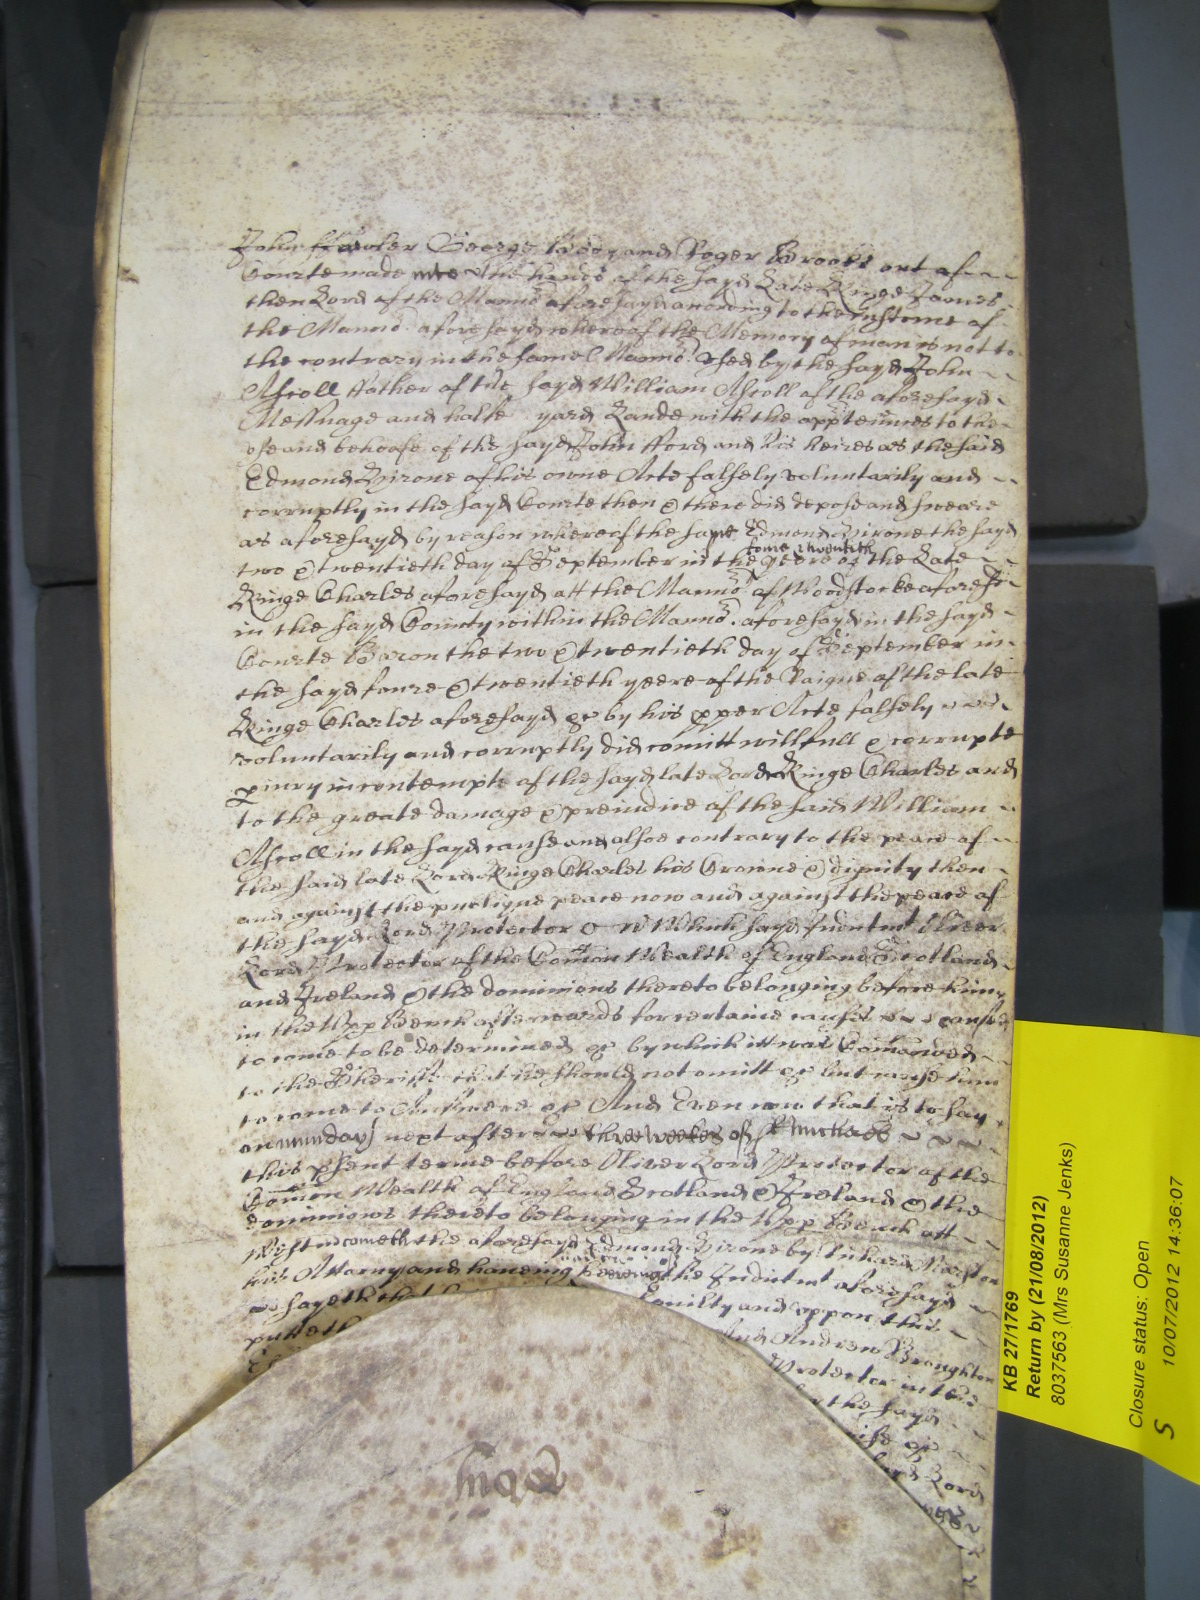 John ffowler George and Roger Brooks out of
Courte made into the hands of the sayd Late Kinge James
then Lord of the Mannor aforesayd according to the custome of
the Mannor aforesayd whereof the Memory of man is not to
the contrary in the same Mannor used by the sayd John
Ascoll ffather of the sayd William Ascoll of the aforesayd
Messuage and halfe yard Lande with the apptennces to the
use and behoofe of the sayd John fford and his heires as the said
Edmond Hirone of his owne Acte falsely voluntarily and
corruptly in the sayd Courte then & there did depose and sweare
as aforesayd by reason whereof the same Edmond Hirone the sayd
two & twentieth day of September in the foure & twentieth yeere of the Late
Kinge Charles aforesayd att the Mannor of Woodstocke aforesd
in the sayd County within the Mannor aforesayd in the sayd
Courte Baron the two & twentieth day of September in
the sayd foure & twentieth yeere of the Raigne of the late
Kinge Charles aforesayd &c by his pper Acte falsely
voluntarily and corruptly did comitt willfull & corrupte
piury in contempte of the sayd late Lord Kinge Charles and
to the greate damage & preiudice of the said William
Ascoll in the sayd cause and alsoe contrary to the peace of
the said late Lord Kinge Charles his Crowne & dignity then
and against the publique peace now and against the peace of
the sayd Lord Protector &c Which sayd Indictmt Oliver
Lord Protector of the Comon Wealth of England Scotland
and Ireland & the dominions thereto belonging before him
in the Upp Bench afterwards for certaine causes caused
to come to be determined &c by which itt was Comanded
to the Sheriffe that he should not omitt &c but cause him
to come to Answere &c And Even now that is to say
on munday next after three weekes of St Michael
this psent terme before Oliver Lord Protector of the
Comon Wealth of England Scotland & Ireland & the
dominions thereto belonging in the Upp Bench att
Westm cometh the aforesayd Edmond Hirone by
his Attorny and haveing heereing the Indictmt aforesayd
hee sayeth that guilty and uppon this
putteth And Andrew Broughton
Protector in this
the sayd
&c
Lord
KB 27/1769
Return by (21/08/2012)
8037563 (Mrs Susanne Jenks)
Closure status: Open
S 10/07/2012 14:36:07